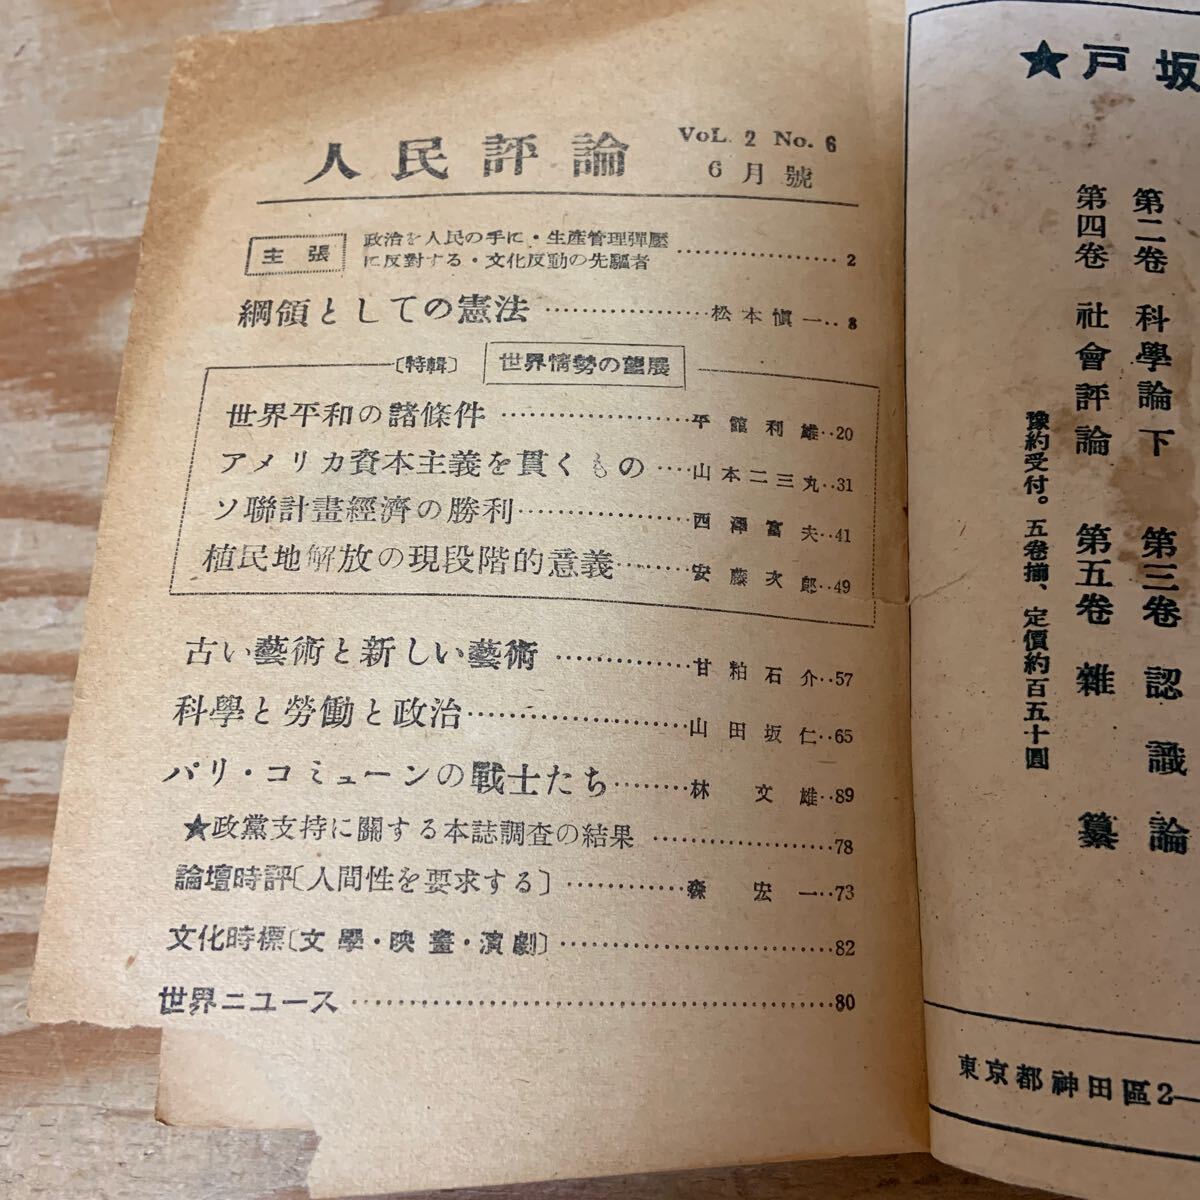 人民評論
VoL. 2 No. 6
6月號
主張
政治を人民の手に・生産管理彈壓
に反對する・文化反動の先驅者 ……………… 2
綱領としての憲法 ……………… 松本愼一‥8
〔特輯〕 世界情勢の望展
世界平和の諸條件 ……………… 平館利雄‥20
アメリカ資本主義を貫くもの …… 山本二三丸‥31
ソ聯計畫經濟の勝利 ……………… 西澤富夫‥41
植民地解放の現段階的意義 ……… 安藤次郎‥49
古い藝術と新しい藝術 …………… 甘粕石介‥57
科學と勞働と政治 ……………… 山田坂仁‥65
パリ・コミューンの戰士たち ……… 林文雄‥89
★政黨支持に關する本誌調査の結果 ……………… 78
論壇時評〔人間性を要求する〕 ………… 森宏一‥73
文化時標〔文學・映畫・演劇〕 ……………… 82
世界ニュース ……………… 80
★戸坂
第二卷 科學論下 第三卷 認識論
第四卷 社會評論 第五卷 雜纂
豫約受付。五卷揃、定價約百五十圓
東京都神田區2―